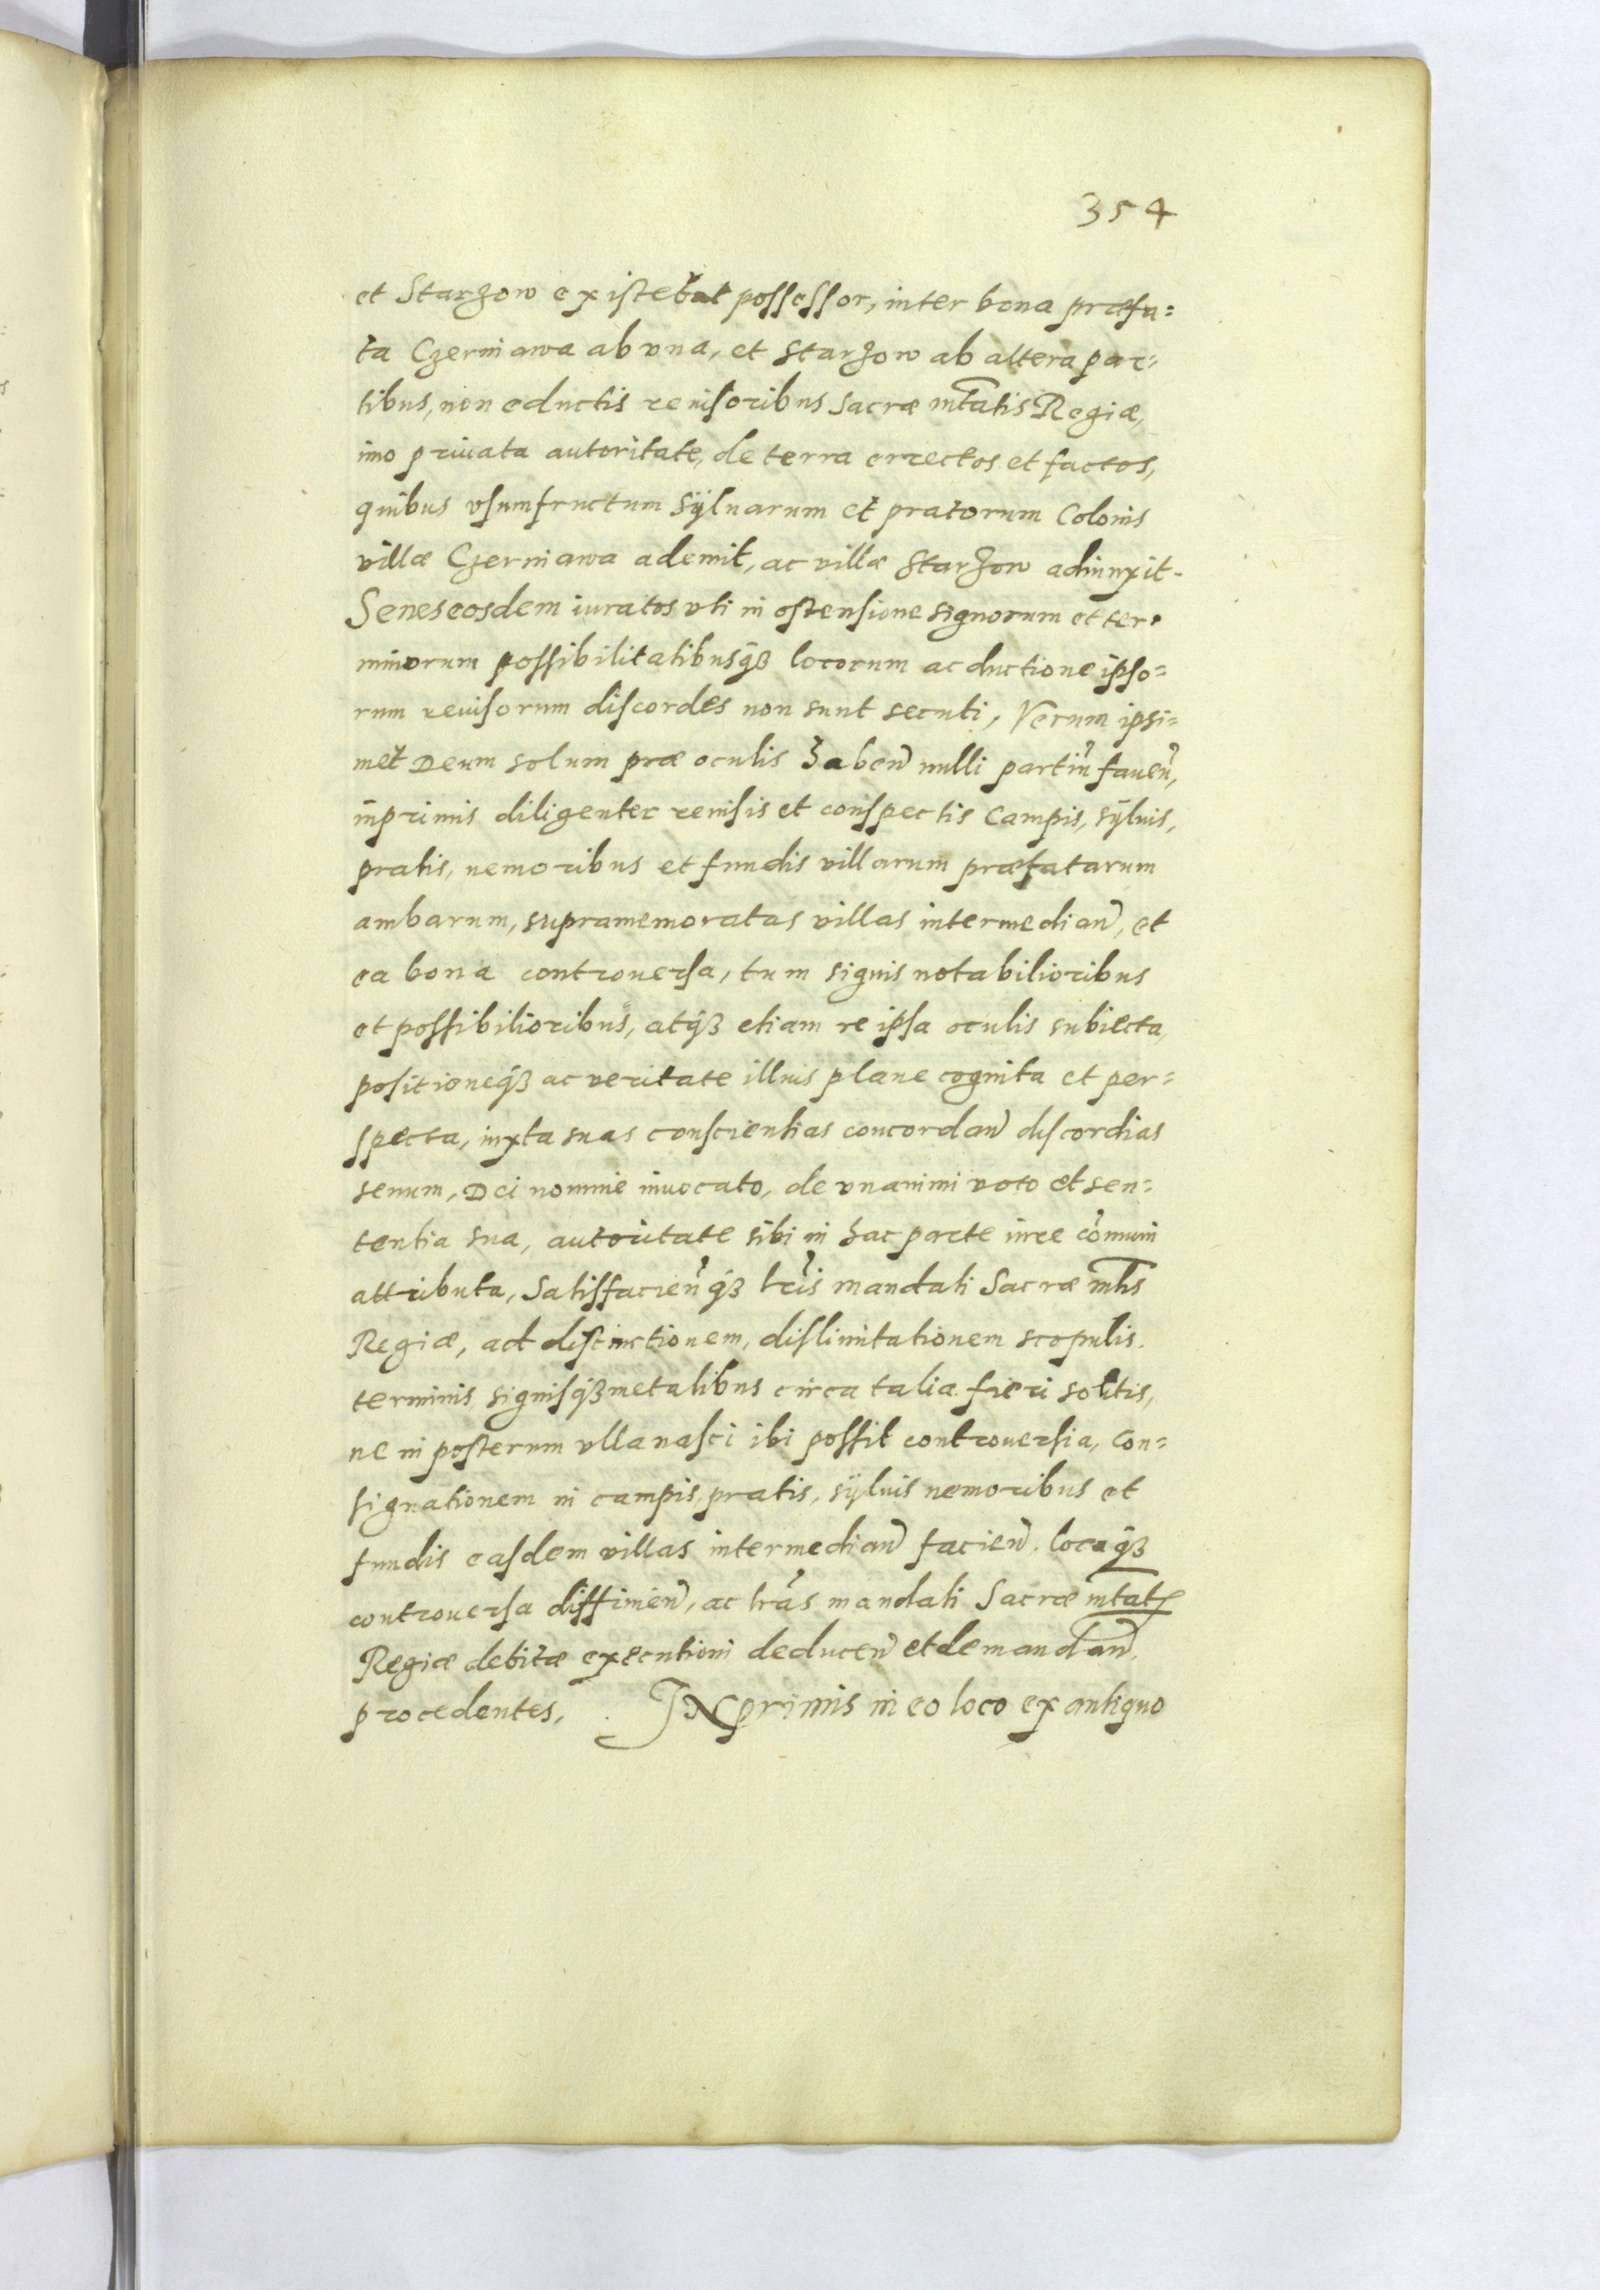 354
et Starzow existebat possessor, inter bona præfa=
ta Czerniawa ab vna, et Starzow ab altera par=
tibus, non eductis reuisoribus Sacræ mtatis Regiæ,
imo priuata autoritate, de terra errectos et factos,
quibus vsumfructum Sÿluarum et pratorum Colonis
villæ Czerniawa ademit, ac villæ Starzow adiunxit.
Senes eosdem iuratos vti in ostensione signorum et ter=
minorum possibilitatibusqȝ locorum ac ductione ipso=
rum reuisorum discordes non sunt secuti, Verum ipsi=
met Deum solum præ oculis haben nulli partiu fauen,
inprimis diligenter reuisis et conspectis Campis, sÿluis,
pratis, nemoribus et fundis villarum præfatarum
ambarum, supramemoratas villas intermedian, et
ea bona controuersa, tum signis notabilioribus
et possibilioribus, atqȝ etiam re ipsa oculis subiecta,
positioneqȝ ac veritate illius plane cognita et per=
specta, iuxta suas conscientias concordan discordias
senum, Dei nomine inuocato, de vnanimi voto et sen=
tentia sua, autoritate sibi in hac parte iure comuni
attributa, Satisfacienqȝ lris mandati Sacræ mtis
Regiæ, ad distinctionem, dislimitationem scopulis,
terminis, signisqȝ metalibus circa talia fieri solitis,
ne in posterum vlla nasci ibi possit controuersia, con=
signationem in campis, pratis, sÿluis nemoribus et
fundis easdem villas intermedian facien, locaqȝ
controuersa diffinien, ac lras mandati Sacræ mtatis
Regiæ debitæ executioni deducen et demandan,
procedentes, INprimis in eo loco ex antiquo